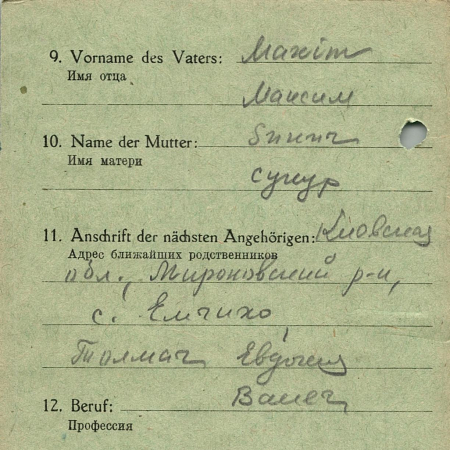 9. Vorname des Vaters: Maxim
Имя отца
Максим
10. Name der Mutter:
Имя матери
11. Anschrift der nächsten Angehörigen: Киовская
Адрес ближайших родственников
обл., Мироновский р-н,
с. Емчихо,
Толмач
12. Beruf:
Профессия